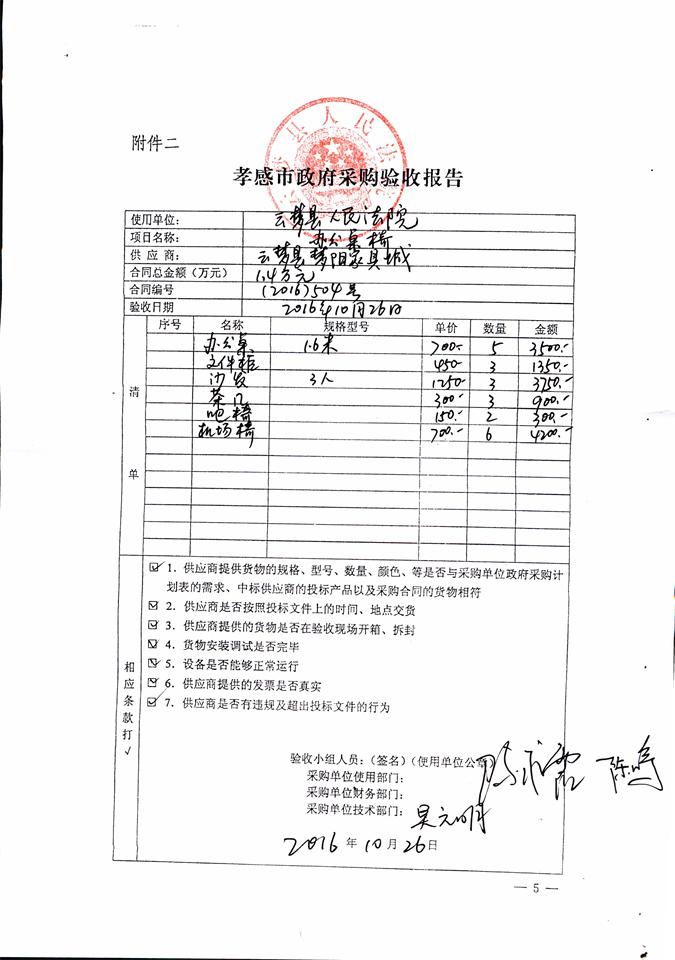 县人民法
附件二
孝感市政府采购验收报告
使用单位: 云梦县人民法院
项目名称: 办公桌椅
供应商: 云梦县梦阳家具城
合同总金额（万元） 1.4万元
合同编号 (2016)504号
验收日期 2016年10月26日
序号 名称 规格型号 单价 数量 金额
办公桌 1.6米 700.- 5 3500.-
文件柜 450- 3 1350.-
沙发 3人 1250- 3 3750.-
茶几 300.- 3 900.-
吧椅 150.- 2 300.-
机场椅 700.- 6 4200.-
清单
相应条款打√
1. 供应商提供货物的规格、型号、数量、颜色、等是否与采购单位政府采购计
划表的需求、中标供应商的投标产品以及采购合同的货物相符
2. 供应商是否按照投标文件上的时间、地点交货
3. 供应商提供的货物是否在验收现场开箱、拆封
4. 货物安装调试是否完毕
5. 设备是否能够正常运行
6. 供应商提供的发票是否真实
7. 供应商是否有违规及超出投标文件的行为
验收小组人员:（签名）（使用单位公章）
采购单位使用部门:
采购单位财务部门:
采购单位技术部门: 吴元明
2016 年 10 月 26 日
— 5 —